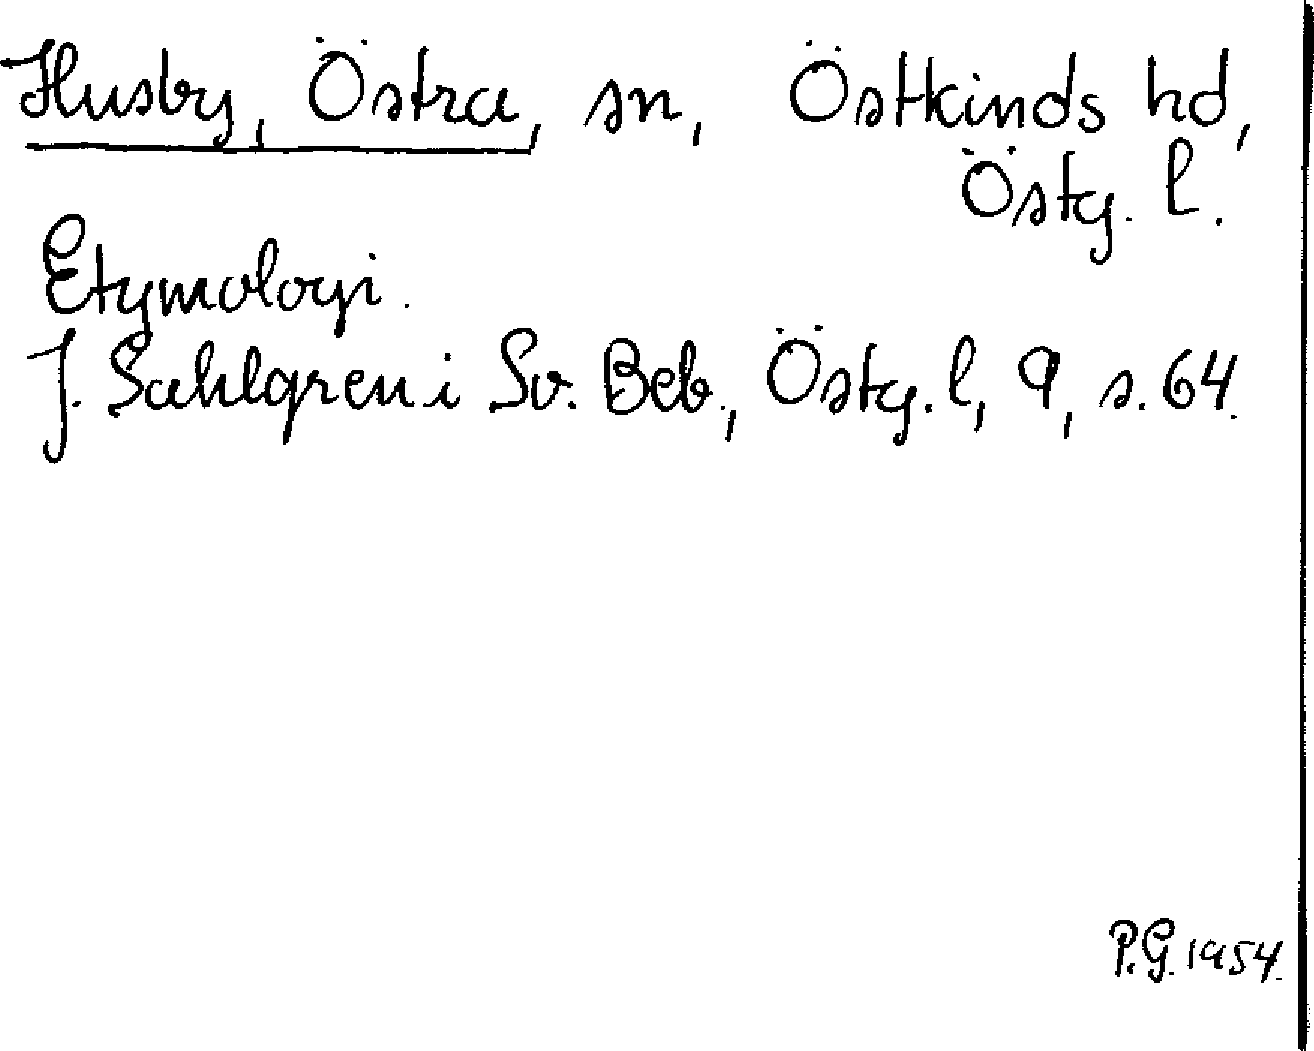 Husby, Östra, sn, Östkinds hd,
Östg. l.
Etymologi.
J. Sahlgren i Sv. Beb., Östg. l, 9, s. 64.
P.G. 1954.